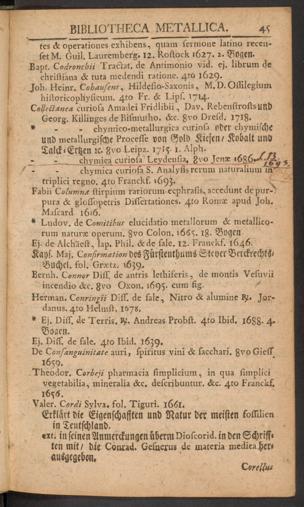 BIBLIOTHECA METALLICA. 45
tes & operationes exhibens, quam sermone latino recen-
set M. Guil. Lauremberg. 12. Rostock 1627. 2. Bogen.
Bapt. Codronchii Tractat. de Antimonio vid. ej. librum de
christiana & tuta medendi ratione. 4to 1629.
Joh. Heinr. Cohausens, Hildesio-Saxonis, M. D. Ossilegium
historicophysicum. 4to Fr. & Lips. 1714.
Collectanea curiosa Amadei Fridlibii, Dav. Rebenstrosts und
Georg. Killinges de Bismutho. &c. 8vo Dresd. 1718.
* - - chymico-metallurgica curiosa oder chymische
und metallurgische Processe von Gold Kiesen/ Kobalt und
Talck-Ertzen &c. 8vo Leipz. 1715 1. Alph.
- - chymica curiosa Leydensia, 8vo Jenæ 1686
1693.
- - chymica curiosa S. Analysis rerum naturalium in
triplici regno. 4to Franckf. 1693.
Fabii Columnæ stirpium rariorum ecphrasis, accedunt de pur-
pura & glossopetris Dissertationes. 4to Romæ apud Joh.
Mascard 1616.
* Ludov. de Comitibus elucidatio metallorum & metallico-
rum naturæ operum. 8vo Colon. 1665. 18. Bogen
Ej. de Alchäest, lap. Phil. & de sale. 12. Franckf. 1646.
Kays. Maj. Confirmation des Fürstenthums Steyer Berckrechts-
Büchel. fol. Grætz. 1639.
Bernh. Connor Diss. de antris lethiferis, de montis Vesuvii
incendio &c. 8vo Oxon. 1695. cum fig.
Herman. Conringii Diss. de sale, Nitro & alumine ℞. Jor-
danus. 4to Helmst. 1678.
* Ej. Diss. de Terris. ℞. Andreas Probst. 4to Ibid. 1688. 4.
Bogen.
Ej. Diss. de sale. 4to Ibid. 1639.
De Consanguinitate auri, spiritus vini & sacchari. 8vo Giess.
1659.
Theodor. Corbeji pharmacia simplicium, in qua simplici
vegetabilia, mineralia &c. describuntur. &c. 4to Franckf.
1656.
Valer. Cordi Sylva. fol. Tiguri. 1661.
Erklärt die Eigenschafften und Natur der meisten fossilien
in Teutschland.
ext. in seinen Anmerckungen überm Dioscorid. in den Schriff-
ten mit/ die Conrad. Gesnerus de materia medica her-
ausgegeben.
Corellus